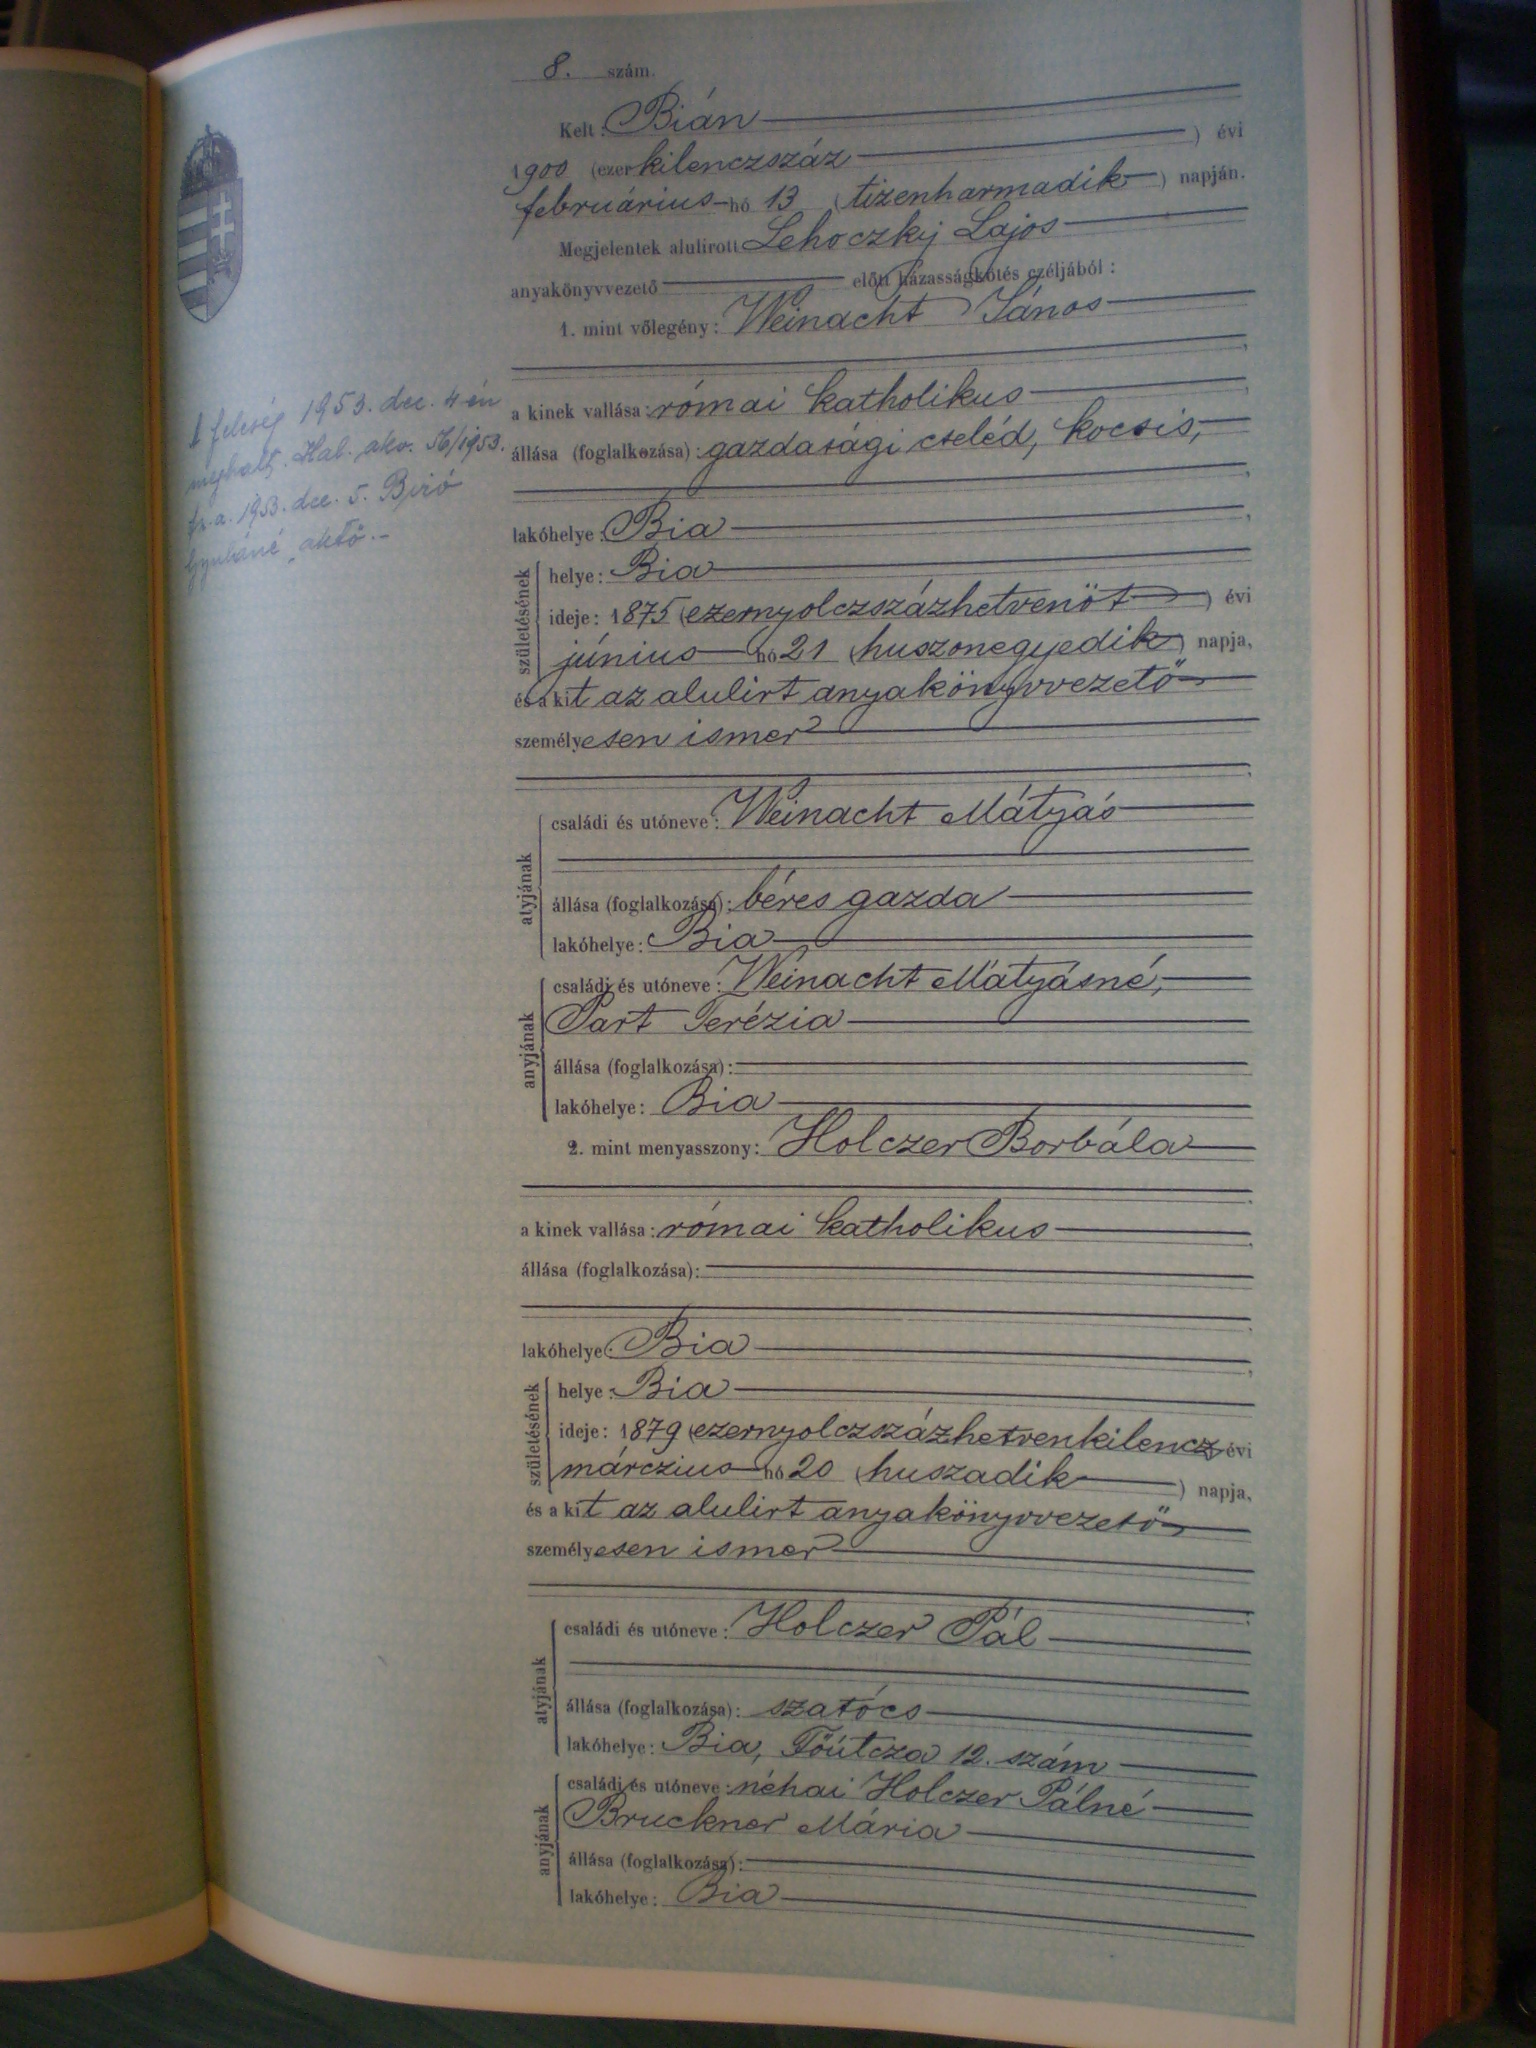 8. szám.
Kelt: Bián
1900 (ezerkilenczszáz) évi
februárius hó 13 (tizenharmadik) napján.
Megjelentek alulirott Lehoczky Lajos
anyakönyvvezető előtt házasságkötés czéljából:
1. mint vőlegény: Weinacht János
a kinek vallása: római katholikus
állása (foglalkozása): gazdasági cseléd, kocsis,
lakóhelye: Bia
születésének
helye: Bia
ideje: 1875 (ezernyolczszázhetvenöt) évi
június hó 21 (huszonegyedik) napja,
és a kit az alulirt anyakönyvvezető
személyesen ismer
atyjának
családi és utóneve: Weinacht Mátyás
állása (foglalkozása): béres gazda
lakóhelye: Bia
anyjának
családi és utóneve: Weinacht Mátyásné,
Part Terézia
állása (foglalkozása):
lakóhelye: Bia
2. mint menyasszony: Holczer Borbála
a kinek vallása: római katholikus
állása (foglalkozása):
lakóhelye: Bia
születésének
helye: Bia
ideje: 1879 (ezernyolczszázhetvenkilencz) évi
márczius hó 20 (huszadik) napja,
és a kit az alulirt anyakönyvvezető
személyesen ismer
atyjának
családi és utóneve: Holczer Pál
állása (foglalkozása): szatócs
lakóhelye: Bia, Főútcza 12. szám
anyjának
családi és utóneve: néhai Holczer Pálné
Bruckner Mária
állása (foglalkozása):
lakóhelye: Bia
A feleség 1953. dec. 4-én
meghalt. Hal. akv. 56/1953.
1953. dec. 5. Biró
Gyuláné